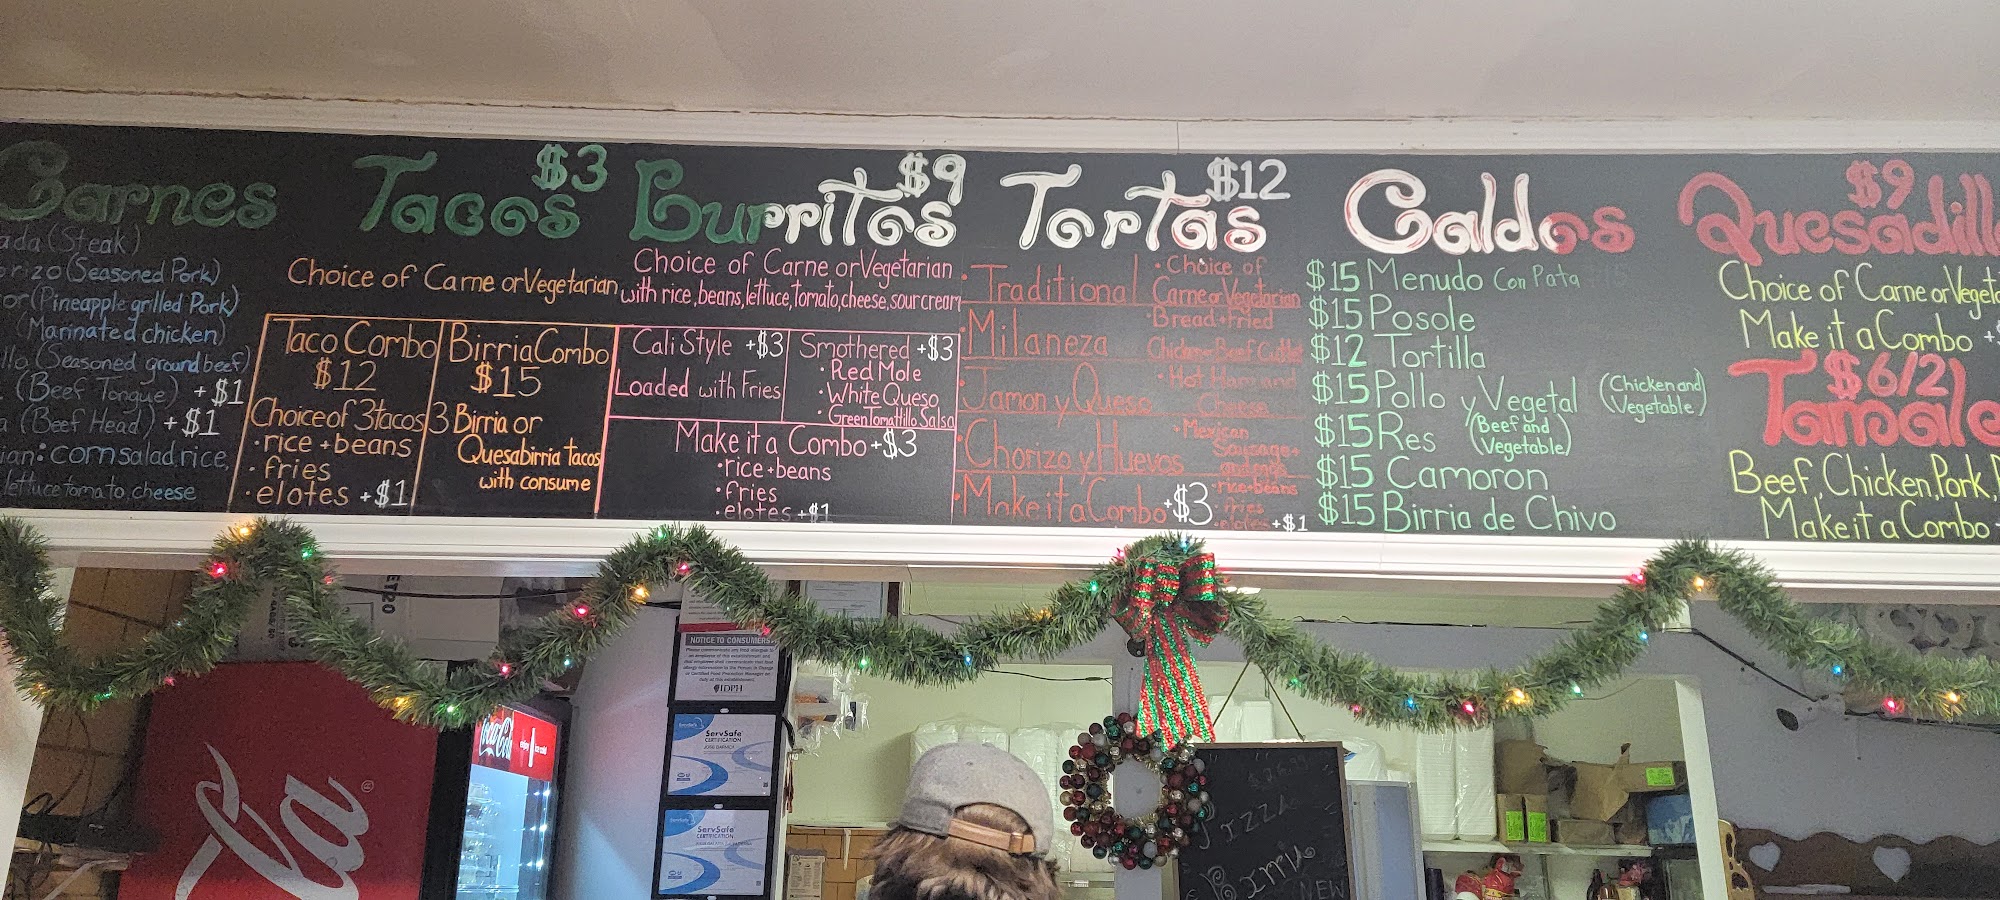 Carnes
ada (Steak)
orizo (Seasoned Pork)
or (Pineapple grilled Pork)
(Marinated chicken)
llo (Seasoned ground beef)
(Beef Tongue) +$1
a (Beef Head) +$1
ian: corn salad, rice,
lettuce tomato, cheese
Tacos $3
Choice of Carne or Vegetarian
Taco Combo
$12
Choice of 3 tacos
• rice + beans
• fries
• elotes +$1
Birria Combo
$15
3 Birria or
Quesabirria tacos
with consume
Burritos $9
Choice of Carne or Vegetarian
with rice, beans, lettuce, tomato, cheese, sour cream
Cali Style +$3
Loaded with Fries
Smothered +$3
• Red Mole
• White Queso
• Green Tomattillo Salsa
Make it a Combo +$3
• rice + beans
• fries
• elotes +$1
Tortas $12
• Traditional
• Choice of
Carne or Vegetarian
• Milaneza
• Bread + Fried
Chicken or Beef Cutlet
• Jamon y Queso
• Hot Ham and
Cheese
• Chorizo y Huevos
• Mexican
Sausage +
• Make it a Combo +$3
• rice + beans
• fries
• elotes +$1
Caldos
$15 Menudo Con Pata
$15 Posole
$12 Tortilla
$15 Pollo y Vegetal (Chicken and
Vegetable)
$15 Res (Beef and
Vegetable)
$15 Camoron
$15 Birria de Chivo
$9
Quesadill
Choice of Carne or Veget
Make it a Combo +
$6/2
Tamale
Beef, Chicken, Pork,
Make it a Combo
NOTICE TO CONSUMERS
IDPH
ServSafe
CERTIFICATION
ServSafe
CERTIFICATION
Coca-Cola
la
Pizza
Birria
NEW